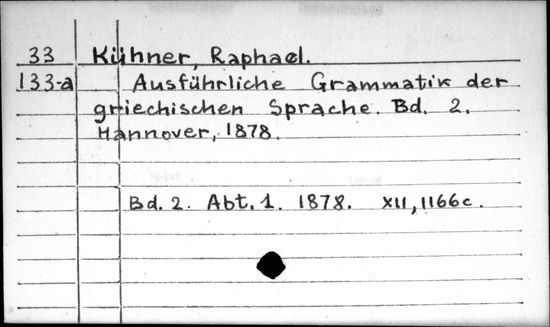 33 Kühner, Raphael.
133-a Ausführliche Grammatik der
griechischen Sprache. Bd. 2.
Hannover, 1878.
Bd. 2. Abt. 1. 1878. XII, 1166c.